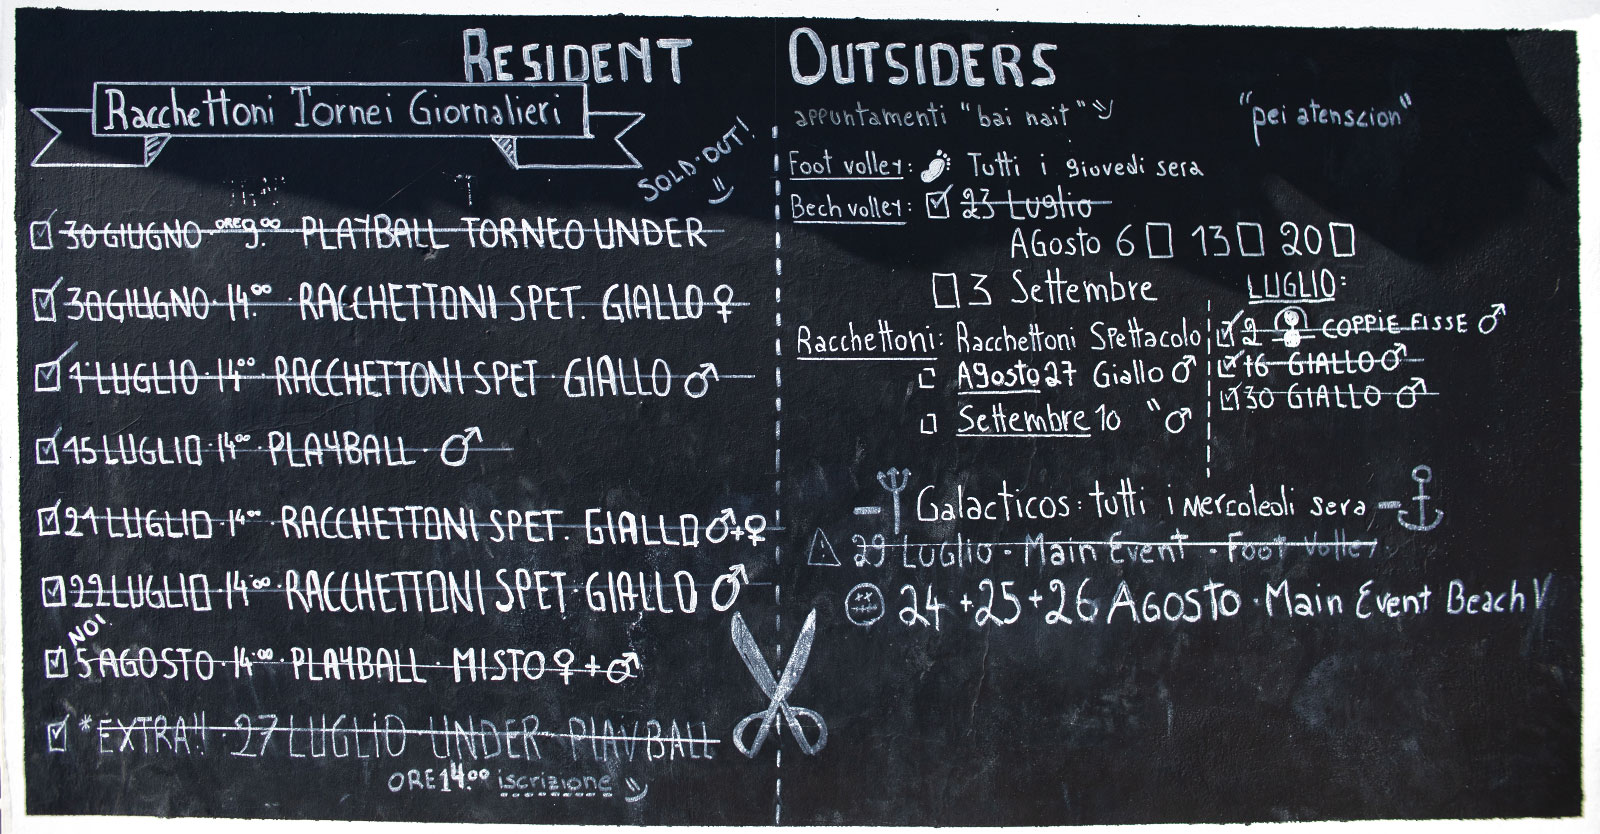 RESIDENT
Racchettoni Tornei Giornalieri
SOLD-OUT!
30 GIUGNO · ORE 9.00 PLAYBALL TORNEO UNDER
30 GIUGNO · 14.00 · RACCHETTONI SPET. GIALLO ♀
1° LUGLIO · 14.00 · RACCHETTONI SPET · GIALLO ♂
15 LUGLIO · 14.00 · PLAYBALL · ♂
21 LUGLIO · 14.00 · RACCHETTONI SPET. GIALLO ♂+♀
22 LUGLIO · 14.00 · RACCHETTONI SPET · GIALLO ♂
NO!
5 AGOSTO · 14.00 · PLAYBALL · MISTO ♀ + ♂
*EXTRA!! 27 LUGLIO UNDER PLAYBALL
ORE 14.00 iscrizione
OUTSIDERS
appuntamenti "bai nait"
"pei atenscion"
Foot volley: Tutti i giovedi sera
Bech volley: 23 Luglio
AGosto 6 13 20
3 Settembre
Racchettoni: Racchettoni Spettacolo
Agosto 27 Giallo ♂
Settembre 10 " ♂
LUGLIO:
2 COPPIE FISSE ♂
16 GIALLO ♂
30 GIALLO ♂
Galacticos: tutti i Mercoledi sera
29 Luglio - Main Event - Foot Volley
24 + 25 + 26 AGOSTO · Main Event Beach V